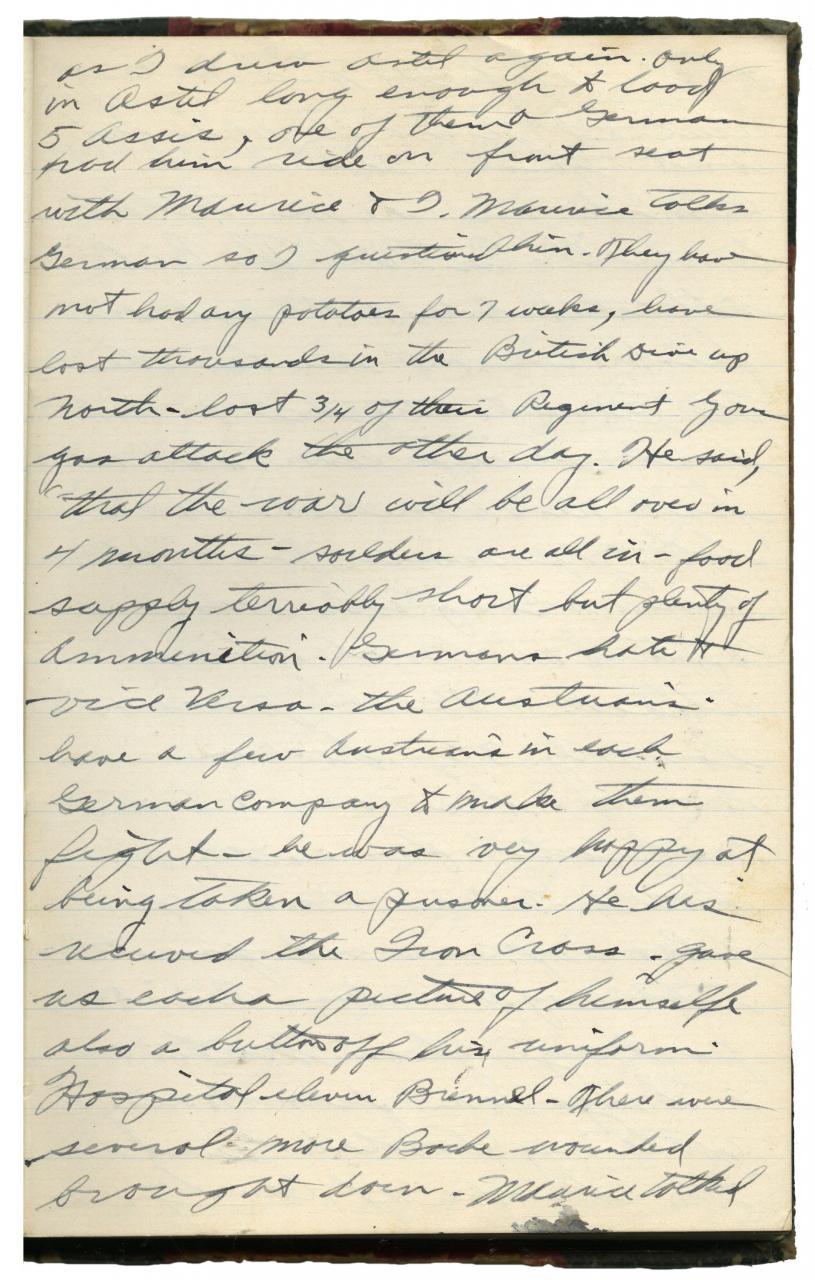 as I drew Astel again. only
in Astel long enough to load
5 Assis, one of them a German
had him ride on front seat
with Maurice & I. Maurice talks
German so I questioned him. They have
not had any potatoes for 7 weeks, have
lost thousands in the British Drive up
North - lost 3/4 of their Regiment by our
gas attack the other day. He said,
"that the war will be all over in
4 months - soulders are all in - food
supply terriably short but plenty of
Ammunition. Germans hate &
vice Versa - the Austrians.
have a few Austrians in each
German Company & make them
fight - he was very happy at
being taken a prisoner. He has
received the Iron Cross - gave
us each a picture of himselfe
also a button off his uniform.
Hospital eleven - There were
several more Boche wounded
brought down - Maurice talked